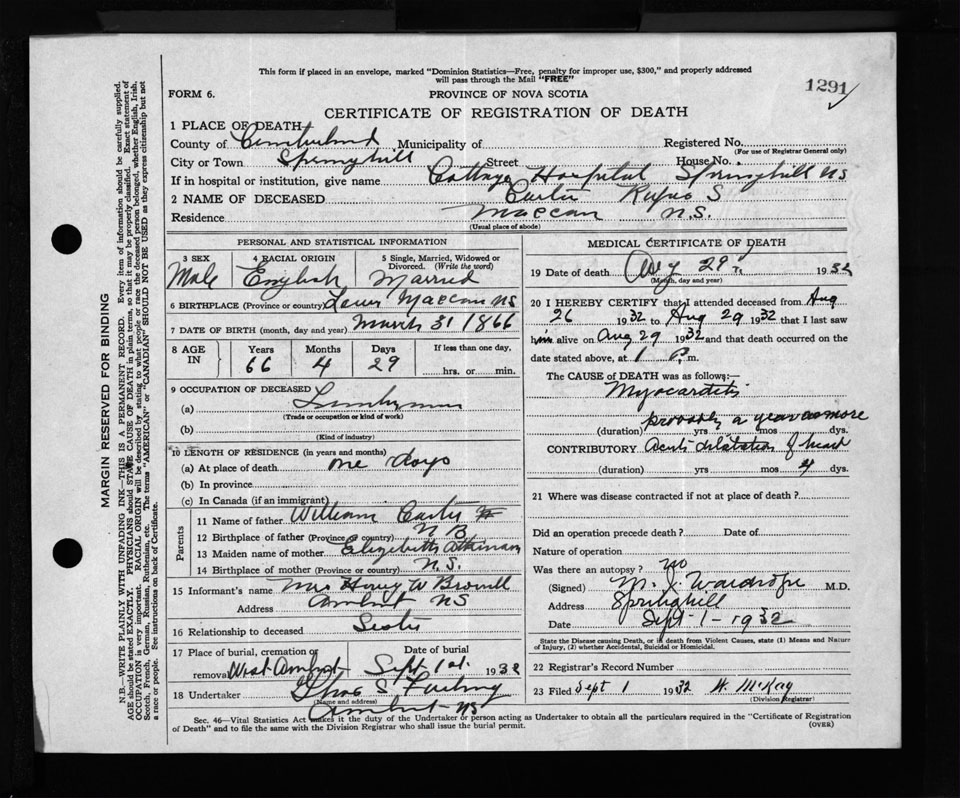 This form if placed in an envelope, marked "Dominion Statistics—Free, penalty for improper use, $300," and properly addressed
will pass through the Mail "FREE"
1291
FORM 6.
PROVINCE OF NOVA SCOTIA
CERTIFICATE OF REGISTRATION OF DEATH
1 PLACE OF DEATH
County of Cumberland Municipality of Registered No.
(For use of Registrar General only)
City or Town Springhill Street House No.
If in hospital or institution, give name Cottage Hospital Springhill NS
2 NAME OF DECEASED Carter Rufus S
Residence Maccan N.S.
(Usual place of abode)
PERSONAL AND STATISTICAL INFORMATION
3 SEX 4 RACIAL ORIGIN 5 Single, Married, Widowed or
Divorced. (Write the word)
Male English Married
6 BIRTHPLACE (Province or country) Lower Maccan NS
7 DATE OF BIRTH (month, day and year) March 31 1866
8 AGE IN Years Months Days If less than one day,
66 4 29 hrs. or min.
9 OCCUPATION OF DECEASED
(a) Lumberman
(Trade or occupation or kind of work)
(b)
(Kind of industry)
10 LENGTH OF RESIDENCE (in years and months)
(a) At place of death one days
(b) In province
(c) In Canada (if an immigrant)
Parents
11 Name of father William Carter
12 Birthplace of father (Province or country) N B
13 Maiden name of mother Elizabeth Atkinson
14 Birthplace of mother (Province or country) N.S.
15 Informant's name Mrs W Brownell
Address Amherst NS
16 Relationship to deceased Sister
17 Place of burial, cremation or Date of burial
removal West Amherst Sept 1st 1932
18 Undertaker Chas S
(Name and address)
Amherst NS
MEDICAL CERTIFICATE OF DEATH
19 Date of death Aug 29 1932
(Month, day and year)
20 I HEREBY CERTIFY that I attended deceased from Aug
26 1932 to Aug 29 1932 that I last saw
him alive on Aug 29 1932 and that death occurred on the
date stated above, at 1 P.m.
The CAUSE of DEATH was as follows:—
Myocarditis
probably a year or more
(duration) yrs mos dys.
CONTRIBUTORY Acute dilatation of heart
(duration) yrs mos 4 dys.
21 Where was disease contracted if not at place of death?
Did an operation precede death? Date of
Nature of operation
Was there an autopsy? no
(Signed) M. J. Wardrope M.D.
Address Springhill
Date Sept-1-1932
State the Disease causing Death, or in death from Violent Causes, state (1) Means and Nature
of Injury, (2) whether Accidental, Suicidal or Homicidal.
22 Registrar's Record Number
23 Filed Sept 1 1932 H. McKay
(Division Registrar)
Sec. 46—Vital Statistics Act makes it the duty of the Undertaker or person acting as Undertaker to obtain all the particulars required in the "Certificate of Registration
of Death" and to file the same with the Division Registrar who shall issue the burial permit.
(OVER)
MARGIN RESERVED FOR BINDING
N.B.—WRITE PLAINLY WITH UNFADING INK—THIS IS A PERMANENT RECORD. Every item of information should be carefully supplied.
AGE should be stated EXACTLY. PHYSICIANS should STATE CAUSE OF DEATH in plain terms, so that it may be properly classified. Exact statement of
OCCUPATION is very important. RACIAL ORIGIN will be described by stating to what people or race the deceased person belonged, whether English, Irish,
Scotch, French, German, Russian, Ruthenian, etc. The terms "AMERICAN" or "CANADIAN" SHOULD NOT BE USED as they express citizenship but not
a race or people. See instructions on back of Certificate.